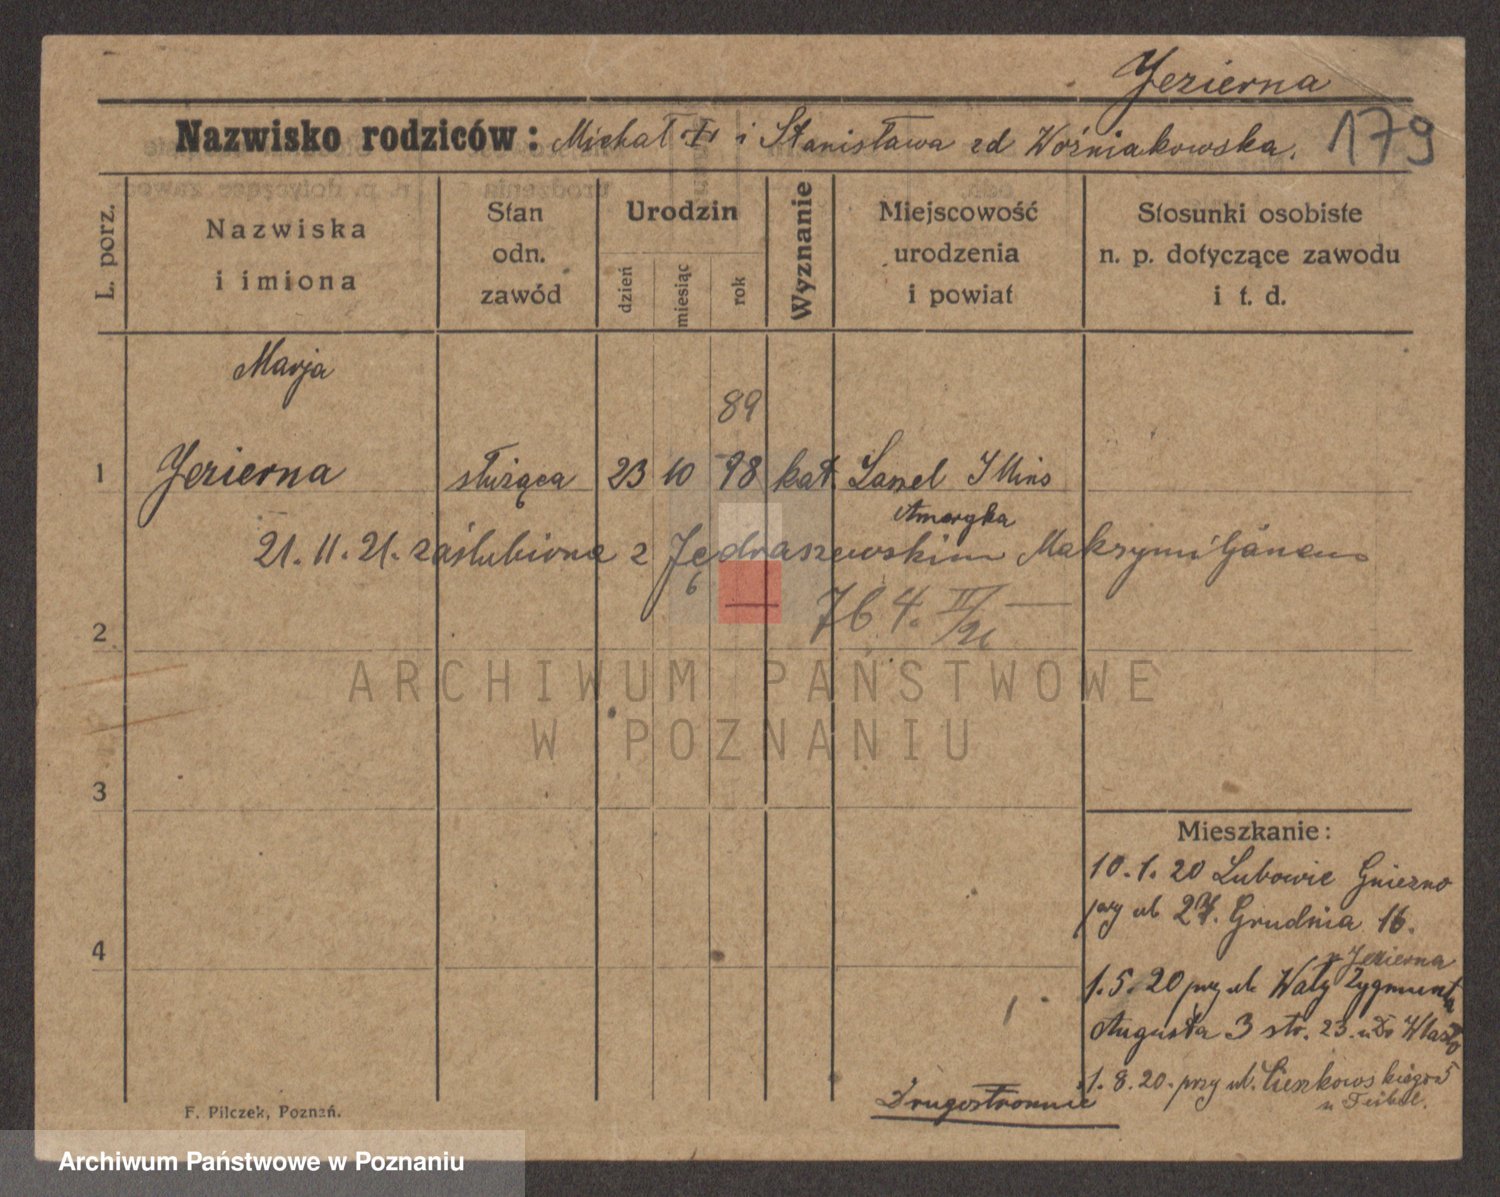 Jezierna
Nazwisko rodziców: Michał i Stanisława zd Woźniakowska. 179
L. porz.
Nazwiska
i imiona
Stan
odn.
zawód
Urodzin
dzień
miesiąc
rok
Wyznanie
Miejscowość
urodzenia
i powiat
Stosunki osobiste
n. p. dotyczące zawodu
i t. d.
Marja
89
1 Jezierna służąca 23 10 98 kat.
Ameryka
21. 11. 21. zaślubiona z Jędraszewskim Maksymiljanem
6
2
ARCHIWUM PAŃSTWOWE
W POZNANIU
3
Mieszkanie:
10. 1. 20 Lubowie Gniezno
przy ul. 27. Grudnia 16.
4
Jezierna
1. 5. 20 przy ul. Wały Zygmunta
Augusta 3 str. 23.
1. 8. 20. przy ul. Cieszkowskiego 5
Drugostronnie
F. Pilczek, Poznań.
Archiwum Państwowe w Poznaniu